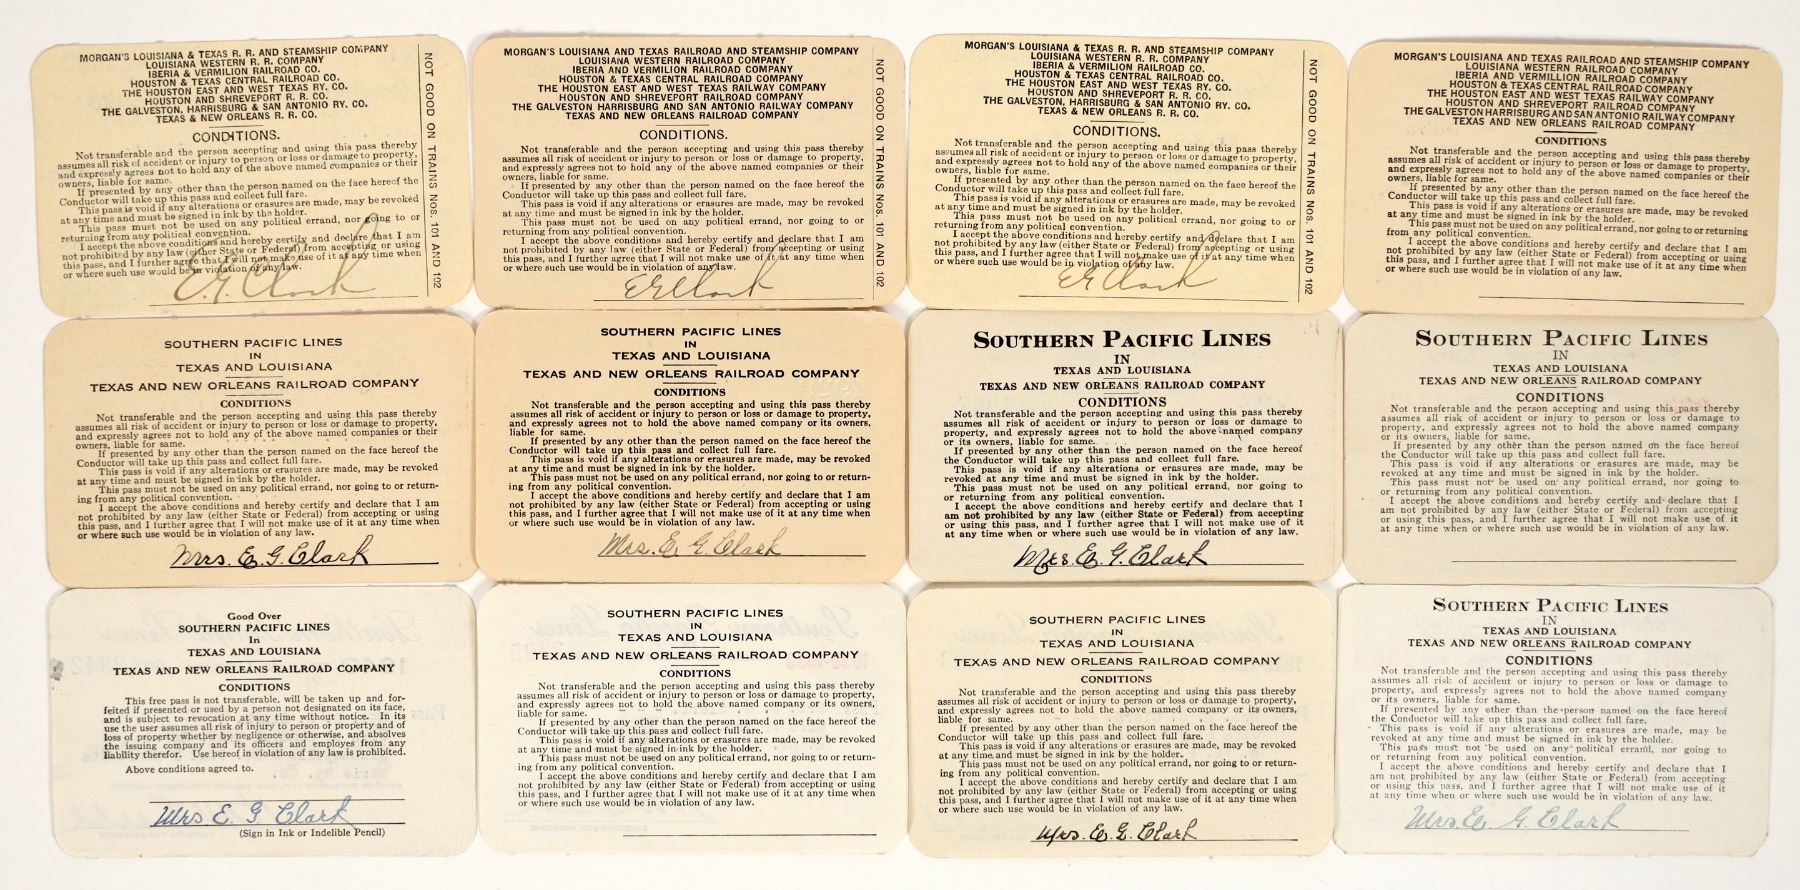 MORGAN'S LOUISIANA & TEXAS R. R. AND STEAMSHIP COMPANY
LOUISIANA WESTERN R. R. COMPANY
IBERIA & VERMILION RAILROAD CO.
HOUSTON & TEXAS CENTRAL RAILROAD CO.
THE HOUSTON EAST AND WEST TEXAS RY. CO.
HOUSTON AND SHREVEPORT R. R. CO.
THE GALVESTON, HARRISBURG & SAN ANTONIO RY. CO.
TEXAS & NEW ORLEANS R. R. CO.
CONDITIONS.
Not transferable and the person accepting and using this pass thereby
assumes all risk of accident or injury to person or loss or damage to property,
and expressly agrees not to hold any of the above named companies or their
owners, liable for same.
If presented by any other than the person named on the face hereof the
Conductor will take up this pass and collect full fare.
This pass is void if any alterations or erasures are made, may be revoked
at any time and must be signed in ink by the holder.
This pass must not be used on any political errand, nor going to or
returning from any political convention.
I accept the above conditions and hereby certify and declare that I am
not prohibited by any law (either State or Federal) from accepting or using
this pass, and I further agree that I will not make use of it at any time when
or where such use would be in violation of any law.
E. G. Clark
NOT GOOD ON TRAINS NOS. 101 AND 102
MORGAN'S LOUISIANA AND TEXAS RAILROAD AND STEAMSHIP COMPANY
LOUISIANA WESTERN RAILROAD COMPANY
IBERIA AND VERMILION RAILROAD COMPANY
HOUSTON & TEXAS CENTRAL RAILROAD COMPANY
THE HOUSTON EAST AND WEST TEXAS RAILWAY COMPANY
HOUSTON AND SHREVEPORT RAILROAD COMPANY
THE GALVESTON HARRISBURG AND SAN ANTONIO RAILWAY COMPANY
TEXAS AND NEW ORLEANS RAILROAD COMPANY
CONDITIONS.
Not transferable and the person accepting and using this pass thereby
assumes all risk of accident or injury to person or loss or damage to property,
and expressly agrees not to hold any of the above named companies or their
owners, liable for same.
If presented by any other than the person named on the face hereof the
Conductor will take up this pass and collect full fare.
This pass is void if any alterations or erasures are made, may be revoked
at any time and must be signed in ink by the holder.
This pass must not be used on any political errand, nor going to or
returning from any political convention.
I accept the above conditions and hereby certify and declare that I am
not prohibited by any law (either State or Federal) from accepting or using
this pass, and I further agree that I will not make use of it at any time when
or where such use would be in violation of any law.
E G Clark
NOT GOOD ON TRAINS NOS. 101 AND 102
MORGAN'S LOUISIANA & TEXAS R. R. AND STEAMSHIP COMPANY
LOUISIANA WESTERN R. R. COMPANY
IBERIA & VERMILION RAILROAD CO.
HOUSTON & TEXAS CENTRAL RAILROAD CO.
THE HOUSTON EAST AND WEST TEXAS RY. CO.
HOUSTON AND SHREVEPORT R. R. CO.
THE GALVESTON, HARRISBURG & SAN ANTONIO RY. CO.
TEXAS & NEW ORLEANS R. R. CO.
CONDITIONS.
Not transferable and the person accepting and using this pass thereby
assumes all risk of accident or injury to person or loss or damage to property,
and expressly agrees not to hold any of the above named companies or their
owners, liable for same.
If presented by any other than the person named on the face hereof the
Conductor will take up this pass and collect full fare.
This pass is void if any alterations or erasures are made, may be revoked
at any time and must be signed in ink by the holder.
This pass must not be used on any political errand, nor going to or
returning from any political convention.
I accept the above conditions and hereby certify and declare that I am
not prohibited by any law (either State or Federal) from accepting or using
this pass, and I further agree that I will not make use of it at any time when
or where such use would be in violation of any law.
E G Clark
NOT GOOD ON TRAINS NOS. 101 AND 102
MORGAN'S LOUISIANA AND TEXAS RAILROAD AND STEAMSHIP COMPANY
LOUISIANA WESTERN RAILROAD COMPANY
IBERIA AND VERMILLION RAILROAD COMPANY
HOUSTON & TEXAS CENTRAL RAILROAD COMPANY
THE HOUSTON EAST AND WEST TEXAS RAILWAY COMPANY
HOUSTON AND SHREVEPORT RAILROAD COMPANY
THE GALVESTON HARRISBURG AND SAN ANTONIO RAILWAY COMPANY
TEXAS AND NEW ORLEANS RAILROAD COMPANY
CONDITIONS
Not transferable and the person accepting and using this pass thereby
assumes all risk of accident or injury to person or loss or damage to property,
and expressly agrees not to hold any of the above named companies or their
owners, liable for same.
If presented by any other than the person named on the face hereof the
Conductor will take up this pass and collect full fare.
This pass is void if any alterations or erasures are made, may be revoked
at any time and must be signed in ink by the holder.
This pass must not be used on any political errand, nor going to or returning
from any political convention.
I accept the above conditions and hereby certify and declare that I am
not prohibited by any law (either State or Federal) from accepting or using
this pass, and I further agree that I will not make use of it at any time when
or where such use would be in violation of any law.
SOUTHERN PACIFIC LINES
IN
TEXAS AND LOUISIANA
TEXAS AND NEW ORLEANS RAILROAD COMPANY
CONDITIONS
Not transferable and the person accepting and using this pass thereby
assumes all risk of accident or injury to person or loss or damage to property,
and expressly agrees not to hold any of the above named companies or their
owners, liable for same.
If presented by any other than the person named on the face hereof the
Conductor will take up this pass and collect full fare.
This pass is void if any alterations or erasures are made, may be revoked
at any time and must be signed in ink by the holder.
This pass must not be used on any political errand, nor going to or return-
ing from any political convention.
I accept the above conditions and hereby certify and declare that I am
not prohibited by any law (either State or Federal) from accepting or using
this pass, and I further agree that I will not make use of it at any time when
or where such use would be in violation of any law.
Mrs. E. G. Clark
SOUTHERN PACIFIC LINES
IN
TEXAS AND LOUISIANA
TEXAS AND NEW ORLEANS RAILROAD COMPANY
CONDITIONS
Not transferable and the person accepting and using this pass thereby
assumes all risk of accident or injury to person or loss or damage to property,
and expressly agrees not to hold any of the above named company or its owners,
liable for same.
If presented by any other than the person named on the face hereof the
Conductor will take up this pass and collect full fare.
This pass is void if any alterations or erasures are made, may be revoked
at any time and must be signed in ink by the holder.
This pass must not be used on any political errand, nor going to or return-
ing from any political convention.
I accept the above conditions and hereby certify and declare that I am
not prohibited by any law (either State or Federal) from accepting or using
this pass, and I further agree that I will not make use of it at any time when
or where such use would be in violation of any law.
Mrs. E. G. Clark
SOUTHERN PACIFIC LINES
IN
TEXAS AND LOUISIANA
TEXAS AND NEW ORLEANS RAILROAD COMPANY
CONDITIONS
Not transferable and the person accepting and using this pass thereby
assumes all risk of accident or injury to person or loss or damage to
property, and expressly agrees not to hold the above named company
or its owners, liable for same.
If presented by any other than the person named on the face hereof
the Conductor will take up this pass and collect full fare.
This pass is void if any alterations or erasures are made, may be
revoked at any time and must be signed in ink by the holder.
This pass must not be used on any political errand, nor going to
or returning from any political convention.
I accept the above conditions and hereby certify and declare that I
am not prohibited by any law (either State or Federal) from accepting
or using this pass, and I further agree that I will not make use of it
at any time when or where such use would be in violation of any law.
Mrs. E. G. Clark
SOUTHERN PACIFIC LINES
IN
TEXAS AND LOUISIANA
TEXAS AND NEW ORLEANS RAILROAD COMPANY
CONDITIONS
Not transferable and the person accepting and using this pass thereby
assumes all risk of accident or injury to person or loss or damage to
property, and expressly agrees not to hold the above named company
or its owners, liable for same.
If presented by any other than the person named on the face hereof
the Conductor will take up this pass and collect full fare.
This pass is void if any alterations or erasures are made, may be
revoked at any time and must be signed in ink by the holder.
This pass must not be used on any political errand, nor going to
or returning from any political convention.
I accept the above conditions and hereby certify and declare that I
am not prohibited by any law (either State or Federal) from accepting
or using this pass, and I further agree that I will not make use of it
at any time when or where such use would be in violation of any law.
Good Over
SOUTHERN PACIFIC LINES
In
TEXAS AND LOUISIANA
TEXAS AND NEW ORLEANS RAILROAD COMPANY
CONDITIONS
This free pass is not transferable, will be taken up and for-
feited if presented or used by a person not designated on its face,
and is subject to revocation at any time without notice. In its
use the user assumes all risk of injury to person or property and of
loss of property whether by negligence or otherwise, and absolves
the issuing company and its officers and employes from any
liability therefor. Use hereof in violation of any law is prohibited.
Above conditions agreed to.
Mrs E. G. Clark
(Sign in Ink or Indelible Pencil)
SOUTHERN PACIFIC LINES
IN
TEXAS AND LOUISIANA
TEXAS AND NEW ORLEANS RAILROAD COMPANY
CONDITIONS
Not transferable and the person accepting and using this pass thereby
assumes all risk of accident or injury to person or loss or damage to property,
and expressly agrees not to hold any of the above named company or its owners,
liable for same.
If presented by any other than the person named on the face hereof the
Conductor will take up this pass and collect full fare.
This pass is void if any alterations or erasures are made, may be revoked
at any time and must be signed in ink by the holder.
This pass must not be used on any political errand, nor going to or return-
ing from any political convention.
I accept the above conditions and hereby certify and declare that I am
not prohibited by any law (either State or Federal) from accepting or using
this pass, and I further agree that I will not make use of it at any time when
or where such use would be in violation of any law.
SOUTHERN PACIFIC LINES
IN
TEXAS AND LOUISIANA
TEXAS AND NEW ORLEANS RAILROAD COMPANY
CONDITIONS
Not transferable and the person accepting and using this pass thereby
assumes all risk of accident or injury to person or loss or damage to property,
and expressly agrees not to hold any of the above named company or its owners,
liable for same.
If presented by any other than the person named on the face hereof the
Conductor will take up this pass and collect full fare.
This pass is void if any alterations or erasures are made, may be revoked
at any time and must be signed in ink by the holder.
This pass must not be used on any political errand, nor going to or return-
ing from any political convention.
I accept the above conditions and hereby certify and declare that I am
not prohibited by any law (either State or Federal) from accepting or using
this pass, and I further agree that I will not make use of it at any time when
or where such use would be in violation of any law.
Mrs. E. G. Clark
SOUTHERN PACIFIC LINES
IN
TEXAS AND LOUISIANA
TEXAS AND NEW ORLEANS RAILROAD COMPANY
CONDITIONS
Not transferable and the person accepting and using this pass thereby
assumes all risk of accident or injury to person or loss or damage to
property, and expressly agrees not to hold the above named company
or its owners, liable for same.
If presented by any other than the person named on the face hereof
the Conductor will take up this pass and collect full fare.
This pass is void if any alterations or erasures are made, may be
revoked at any time and must be signed in ink by the holder.
This pass must not be used on any political errand, nor going to
or returning from any political convention.
I accept the above conditions and hereby certify and declare that I
am not prohibited by any law (either State or Federal) from accepting
or using this pass, and I further agree that I will not make use of it
at any time when or where such use would be in violation of any law.
Mrs E. G. Clark